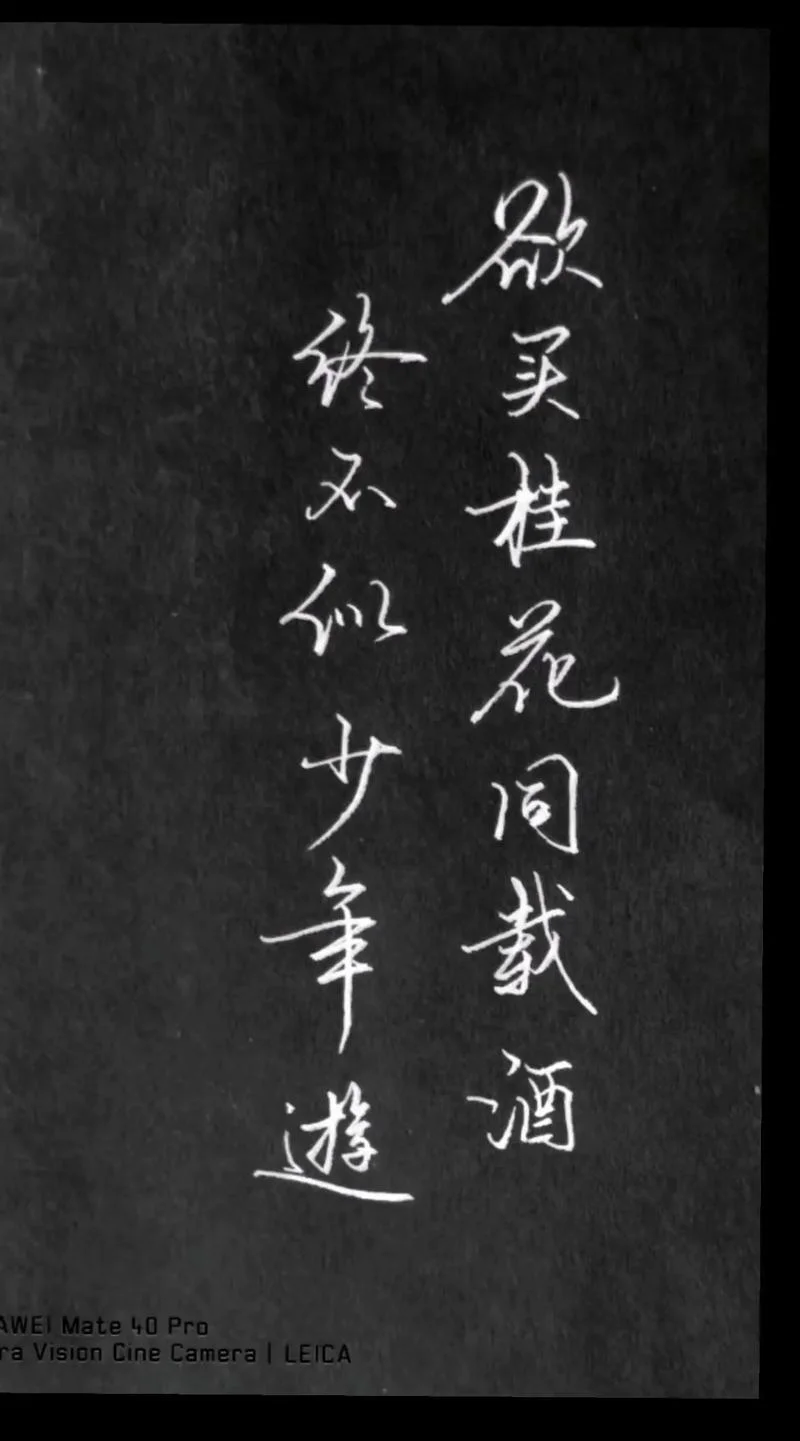 欲买桂花同载酒
终不似少年遊
AWEI Mate 40 Pro
ra Vision Cine Camera | LEICA